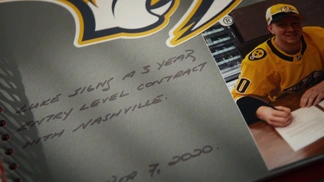 LUKE SIGNS A 3 YEAR
ENTRY LEVEL CONTRACT
WITH NASHVILLE.
7, 2020.